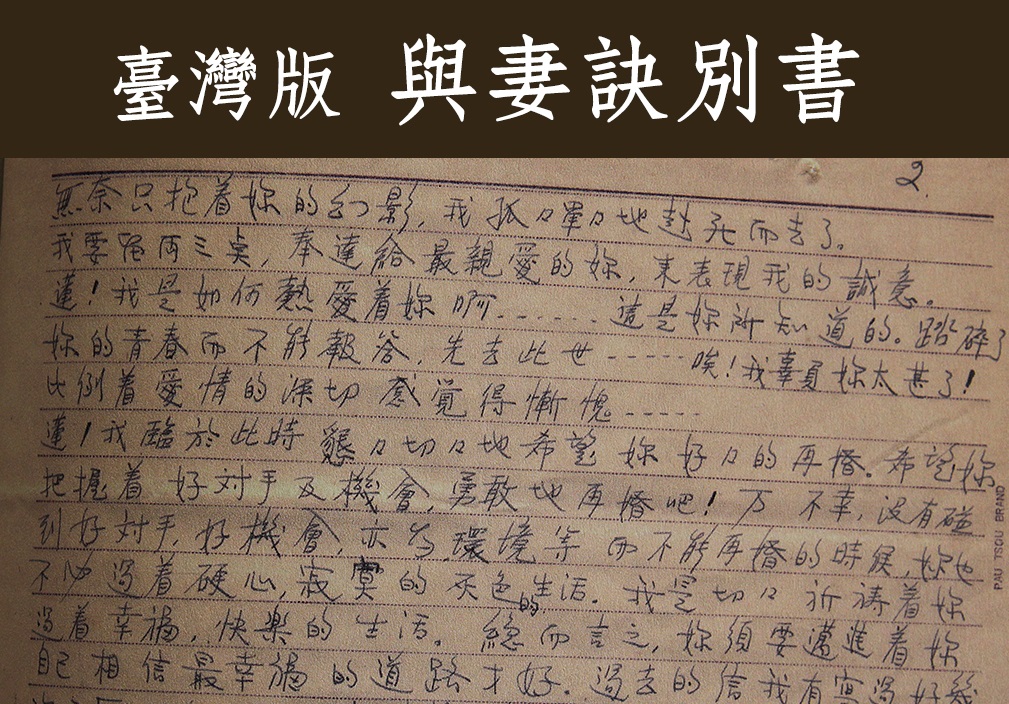 臺灣版 與妻訣別書
2.
無奈只抱着妳的幻影，我孤々單々地赴死而去了。
我要 奉達給最親愛的妳，來表現我的誠意。
蓮！我是如何熱愛着妳啊.......這是妳所知道的。踏碎了
妳的青春而不能報答，先去此世-----唉！我辜負妳太甚了！
比例着愛情的深切感覚得慚愧-----
蓮！我臨於此時懇々切々地希望妳好々的再婚。希望妳
把握着好対手及機會，勇敢地再婚吧！万 不幸，没有碰
到好対手，好機會，亦為環境等而不能再婚的時候，妳也
不必過着硬心，寂寞的灰色的生活。我是切々祈祷着妳
過着幸福，快樂的生活。總而言之，妳須要邁進着妳
自己相信最幸福的道路才好。過去的信我有寫過好幾
PAU TSGU BRAND